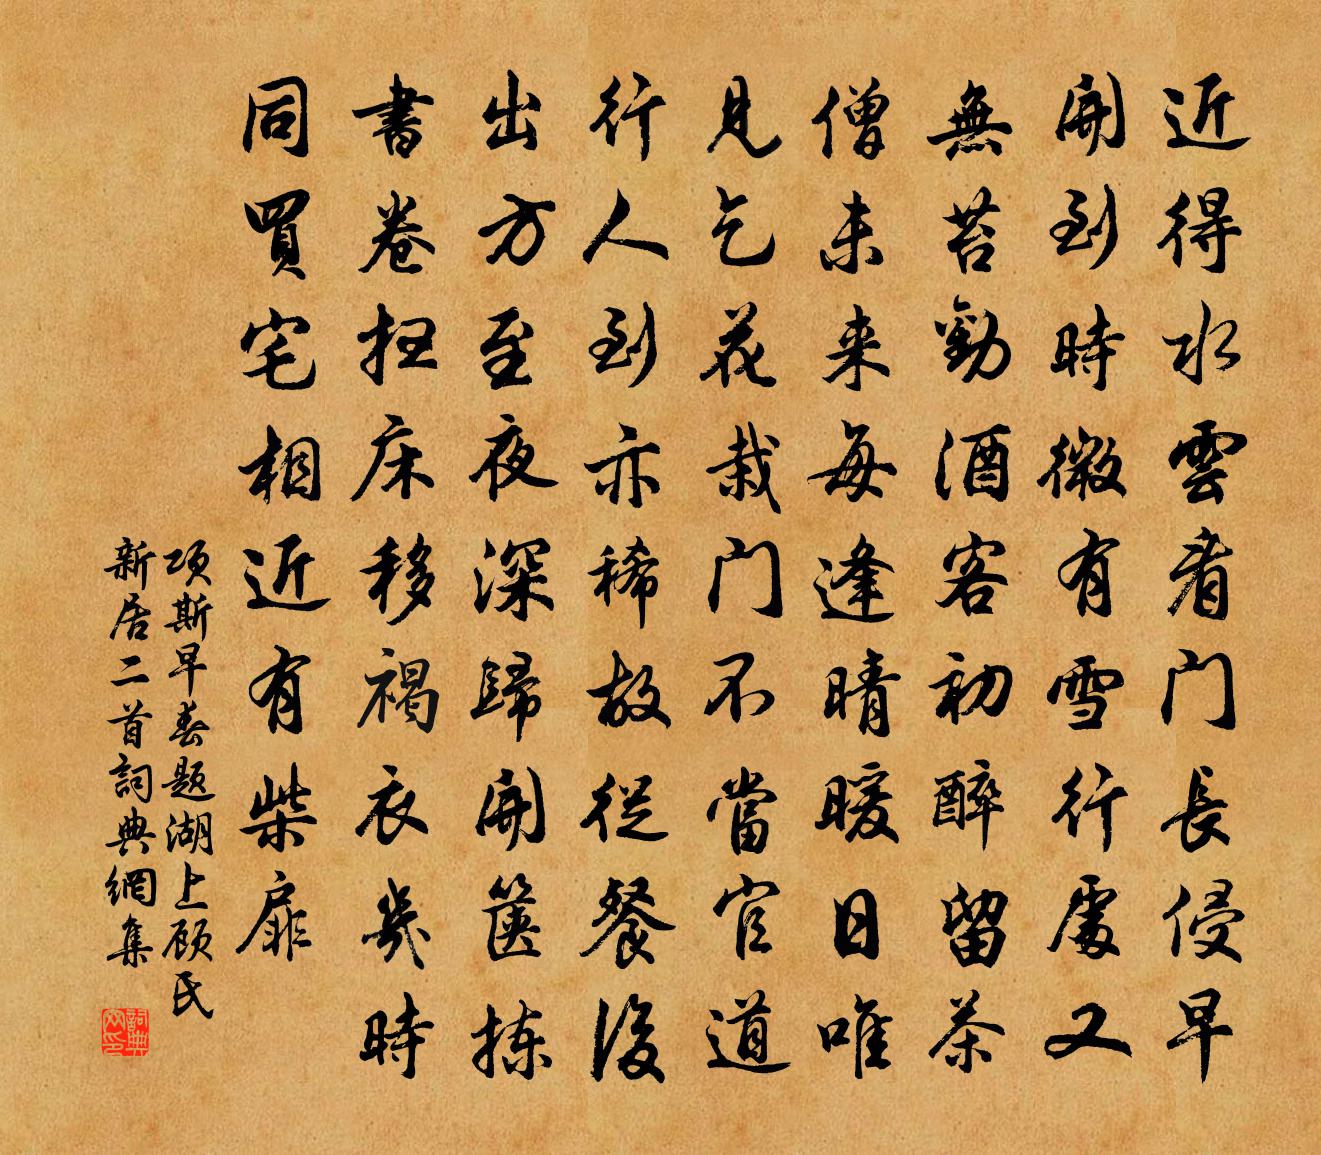 近得水雲看门長侵早
開到時微有雪行處又
無苔勸酒客初醉留茶
僧未来每逢晴暖日唯
見乞花栽门不當官道
行人到亦稀故從餐後
出方至夜深歸開篋揀
書卷扫床移褐衣幾時
同買宅相近有柴扉
项斯早春题湖上顾氏
新居二首詞典網集
詞典网印